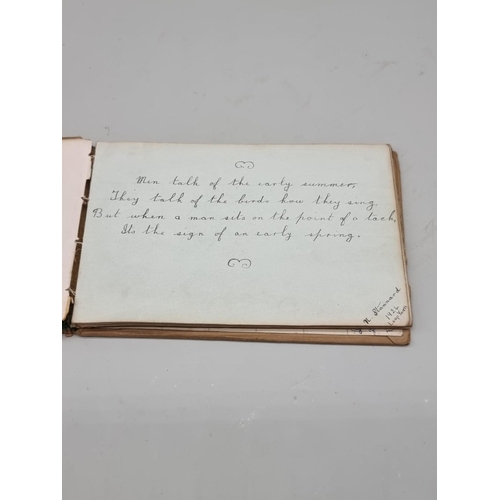 Men talk of the early summer,
They talk of the birds how they sing
But when a man sits on the point of a tack,
Its the sign of an early spring.
R. Stannard
1926